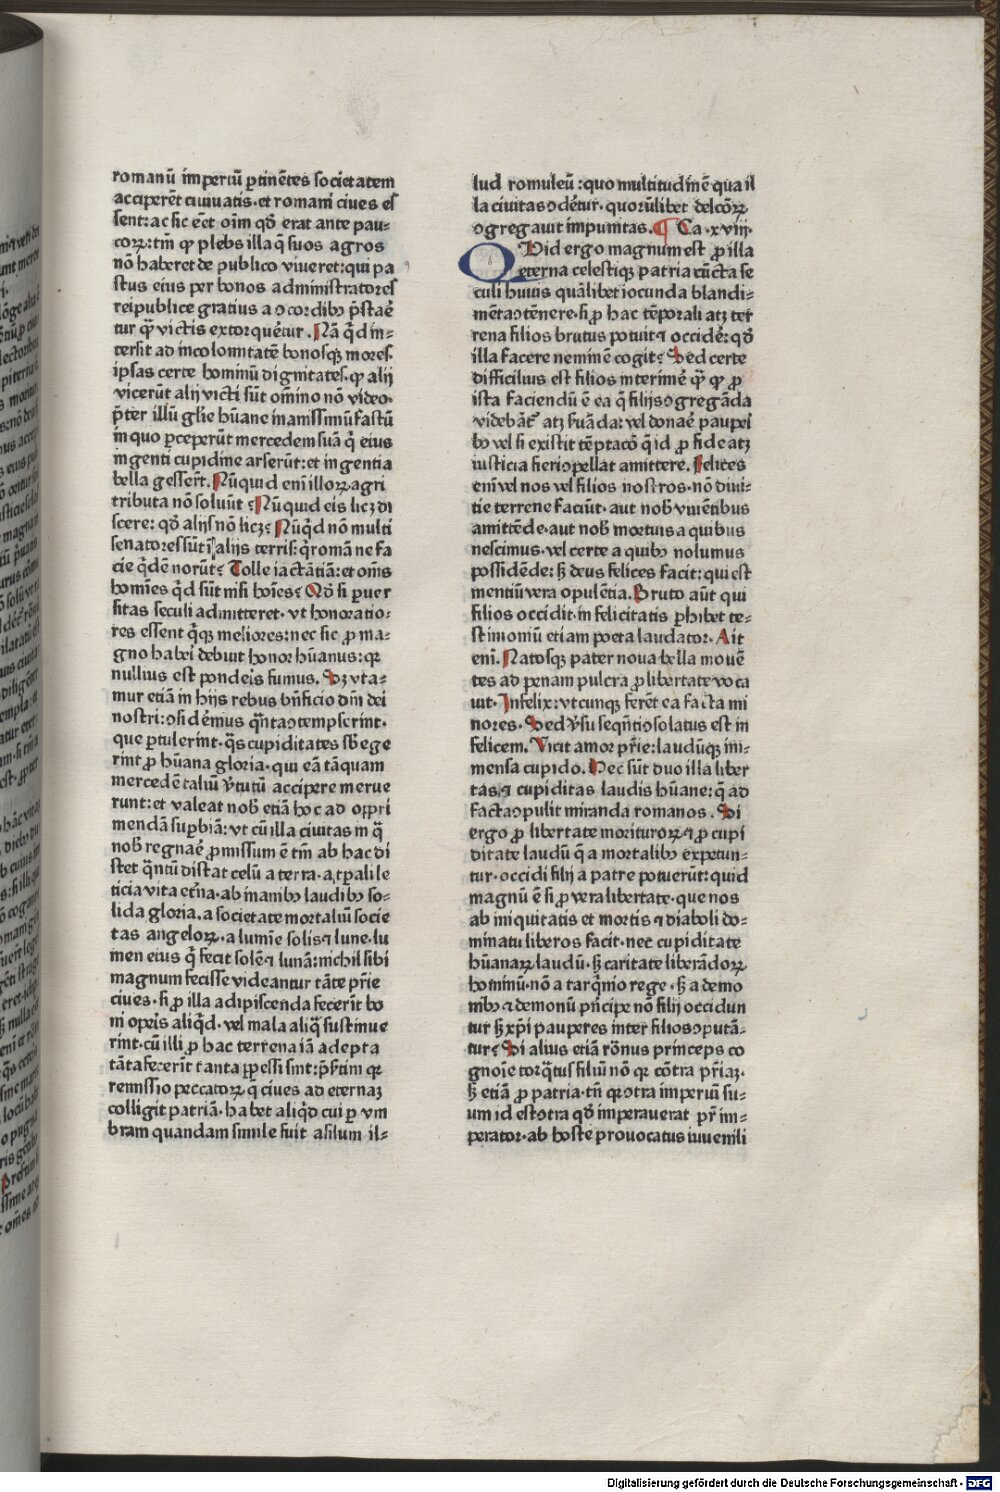 romanū imperiū ꝑtinētes societatem
acciperēt ciuiuatis·et romani ciues eſ
sent: ac sic eēt oīm qđ erat ante pau-
coꝝ: tm̄ ꝙ plebs illa q̄ suos agros
nō haberet de publico viueret: qui pa
stus eius per bonos administratores
reipublice gratius a ɔcordibꝰ p̄staē
tur qꝫ victis extorquētur. Nā q̄d in-
tersit ad incolomitatē bonosqꝫ mores·
ipsas certe hominū dignitates·ꝙ alij
vicerūt alij victi sūt omīno nō video·
p̄ter illū gl̄ie hūane inanissimū fastū
in quo ꝑceperūt mercedem suā q̄ eius
ingenti cupidine arserūt: et ingentia
bella gesserūt. Nūquid enī illoꝝ agri
tributa nō soluūt? Nūquid eis licꝫ di
scere: qđ alijs nō licꝫ? Nūq̄d nō multi
senatores sūt ī alijs terris: q̄ romā ne fa
cie q̄dē norūt? Tolle iactātiā: et om̄s
homīes q̄d sūt nisi hoīes? Qđ si ꝑuer
sitas seculi admitteret· vt honoratio-
res essent q̄qꝫ meliores: nec sic ꝓ ma-
gno haberi debuit honor hūanus: qꝛ
nullius est ponderis fumus. Sꝫ vta-
mur etiā in hijs rebus bn̄ficio dn̄i dei
nostri: ɔsidēmus q̄nta ɔtempserint·
que ꝑtulerint· q̄s cupiditates sb̄ege
rint ꝓ hūana gloria· qui eā tāquam
mercedē taliū v̄tutū accipere merue
runt: et valeat nob̄ etiā hoc ad oppri
mendā suꝑbiā: vt cū illa ciuitas in q̄
nob̄ regnaē ꝓmissum ē tm̄ ab hac di
stet q̄ntū distat celū a terra· a tꝑali le
ticia vita et̄na· ab inanibꝰ laudibꝰ so-
lida gloria· a societate mortaliū socie
tas angeloꝝ· a lumīe solis ⁊ lune· lu
men eius q̄ fecit solē ⁊ lunā: nichil sibi
magnum fecisse videantur tāte pr̄ie
ciues· si ꝓ illa adipiscenda fecerīt bo
ni operis aliq̄d· vel mala aliq̄ sustinue
rint· cū illi ꝓ hac terrena iā adepta
tāta fecerīt tanta ꝑpessi sint: p̄s̄tim qꝛ
remissio peccatoꝝ q̄ ciues ad eternaꝫ
colligit patriā· habet aliqđ cui ꝑ vm
bram quandam simile fuit asilum il-
lud romuleū: quo multitudinē qua il
la ciuitas ɔdētur· quorūlibet delictōꝝ
ɔgregauit impunitas. ¶ Ca·xviij·
QVid ergo magnum est ꝓ illa
eterna celestiqꝫ patria cūcta se
culi huius quālibet iocunda blandi-
mēta ɔtēnere· si ꝓ hac tēporali atqꝫ ter
rena filios brutus potuit ⁊ occidēr: qđ
illa facere neminē cogit? Sed certe
difficilius est filios interimē qꝫ ꝙ ꝓ
ista faciendū ē ea q̄ filijs ɔgregāda
videbāt̄ atqꝫ suāda: vel donaē pauperi
bꝰ vel si existit tēptacō q̄ id ꝓ fide atqꝫ
iusticia fieri ɔpellat amittere. Felices
enī vel nos vel filios nostros· nō diui-
tie terrene faciūt· aut nob̄ viuētibus
amittēde· aut nob̄ mortuis a quibus
nescimus· vel certe a quibꝰ nolumus
possidēde: sꝫ deus felices facit: qui est
mentiū vera opulētia. Bruto aūt qui
filios occidit· infelicitatis ꝑhibet te-
stimoniū etiam poeta laudator. Ait
enī. Natosqꝫ pater noua bella mouē
tes ad penam pulcra ꝓ libertate voca
uit. Infelix: vtcunqꝫ ferēt ea facta mi
nores. Sed v̄su seqn̄ti ɔsolatus est in
felicem. Vicit amor pr̄ie: laudūqꝫ im-
mensa cupido. Hec sūt duo illa liber
tas ⁊ cupiditas laudis hūane: q̄ ad
facta ɔpulit miranda romanos. Si
ergo ꝓ libertate morituroꝝ ⁊ ꝓ cupi
ditate laudū q̄ a mortalibꝰ expetun-
tur· occidi filij a patre potuerūt: quid
magnū ē si ꝓ vera libertate· que nos
ab iniquitatis et mortis ⁊ diaboli do-
minatu liberos facit· nec cupiditate
hūanaꝝ laudū· sꝫ caritate liberādoꝝ
hominū· nō a tarq̄nio rege· sꝫ a demo
nibꝰ ⁊ demonū prīcipe nō filij occidun
tur sꝫ xp̄i pauperes inter filios ɔputā-
tur? Si alius etiā rōnus princeps co
gnoīe torq̄tus filiū nō qꝛ cōtra pr̄iaꝫ·
sꝫ etiā ꝓ patria· tn̄ qꝛ ɔtra imperiū su-
um id est ɔtra qđ imperauerat pr̄ im-
perator· ab hoste prouocatus iuuenili
Digitalisierung gefördert durch die Deutsche Forschungsgemeinschaft - DFG